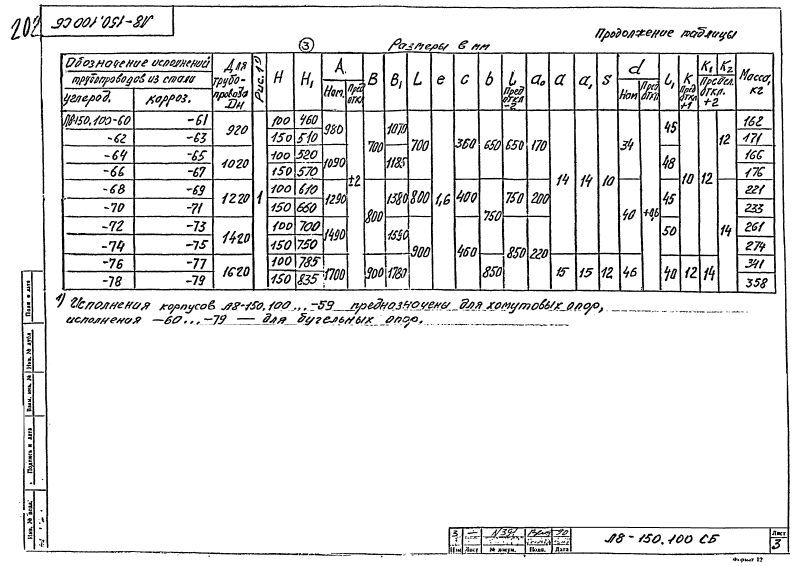 202
Л8-150.100 СБ
Продолжение таблицы
③ Размеры в мм
Обозначение исполнений трубопроводов из стали | Для трубопровода Dн | Рис. 1) | H | H1 | A | B | B1 | L | e | c | b | l Пред. откл. -2 | a0 | a | a1 | s | d | l1 | K Пред. откл. +1 | K1 | K2 | Масса, кг
углерод. | корроз. | Ном. | Пред. откл. | Ном. | Пред. откл. | Пред. откл. +2
Л8-150.100-60 | -61 | 920 | 1 | 100 | 460 | 980 | ±2 | 700 | 1070 | 700 | 1,6 | 360 | 650 | 650 | 170 | 14 | 14 | 10 | 34 | +0,6 | 45 | 10 | 12 | 12 | 162
-62 | -63 | 150 | 510 | 171
-64 | -65 | 1020 | 100 | 520 | 1090 | 1185 | 48 | 166
-66 | -67 | 150 | 570 | 176
-68 | -69 | 1220 | 100 | 610 | 1290 | 800 | 1380 | 800 | 400 | 750 | 750 | 200 | 40 | 45 | 14 | 221
-70 | -71 | 150 | 660 | 233
-72 | -73 | 1420 | 100 | 700 | 1490 | 1590 | 900 | 460 | 850 | 220 | 50 | 261
-74 | -75 | 150 | 750 | 274
-76 | -77 | 1620 | 100 | 785 | 1700 | 900 | 1780 | 850 | 15 | 15 | 12 | 46 | 40 | 12 | 14 | 341
-78 | -79 | 150 | 835 | 358
1) Исполнения корпусов Л8-150.100...-59 предназначены для хомутовых опор,
исполнения -60...-79 — для бугельных опор.
Подп. и дата
Инв. № дубл.
Взам. инв. №
Подпись и дата
Инв. № подл.
3 — 90
Изм Лист № докум. Подп. Дата
Л8-150.100 СБ
Лист
3
Формат 12